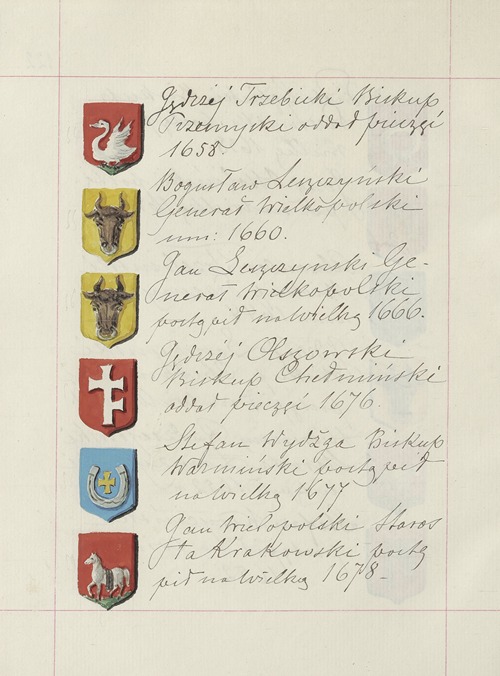 Jędrzéj Trzebicki Biskup
Przemycki oddał pieczęć
1658.
Bogusław Leszczyński
Generał Wielkopolski
um: 1660.
Jan Leszczynski Ge-
nerał Wielkopolski
postąpił na Wielką 1666.
Jędrzéj Olszowski
Biskup Chełmiński
oddał pieczęć 1676.
Stefan Wydżga Biskup
Warmiński postąpił
na Wielką 1677
Jan Wielopolski Staros
ta Krakowski postą
pił na Wielką 1678-